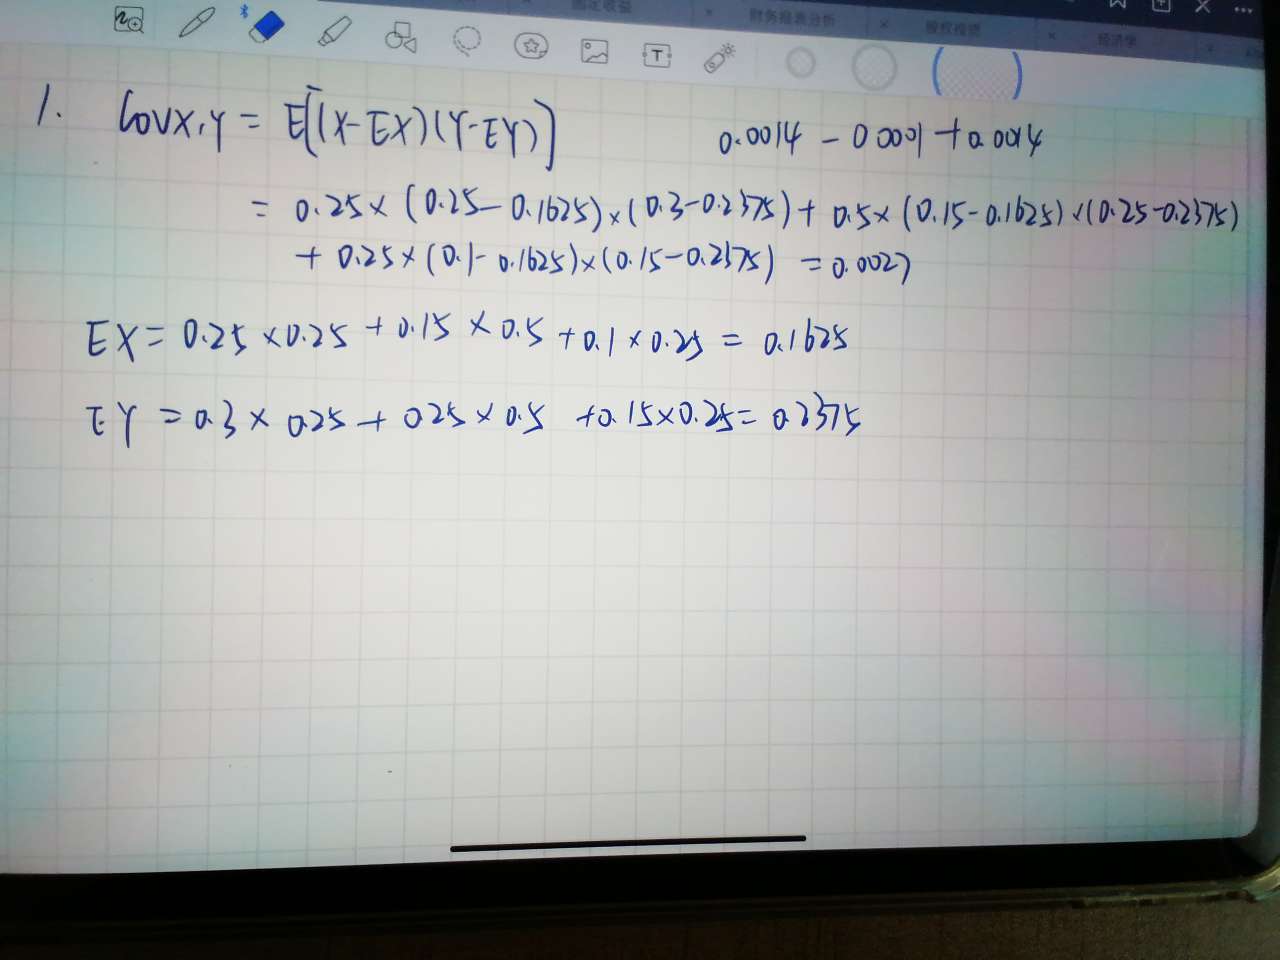 固定收益 财务报表分析 股权投资 经济学
T
1. CovX,Y = E[(X-EX)(Y-EY)] 0.0014 - 0.0001 + 0.0014
= 0.25×(0.25-0.1625)×(0.3-0.2375)+ 0.5×(0.15-0.1625)×(0.25-0.2375)
+ 0.25×(0.1-0.1625)×(0.15-0.2375) = 0.0027
EX = 0.25×0.25 + 0.15×0.5 + 0.1×0.25 = 0.1625
EY = 0.3 × 0.25 + 0.25×0.5 + 0.15×0.25 = 0.2375